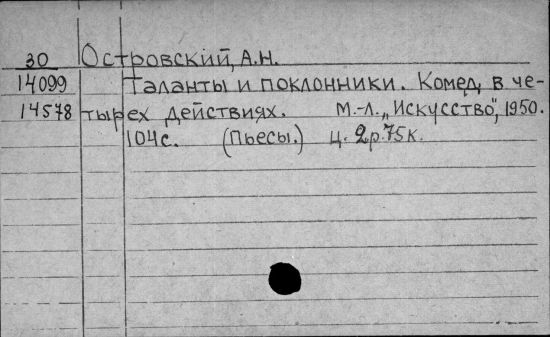 30 Островский, А.Н.
14099 Таланты и поклонники. Комед. в че-
14578 тырех действиях. М.-Л. „Искусство", 1950.
104с. (Пьесы.) ц. 2р.75к.